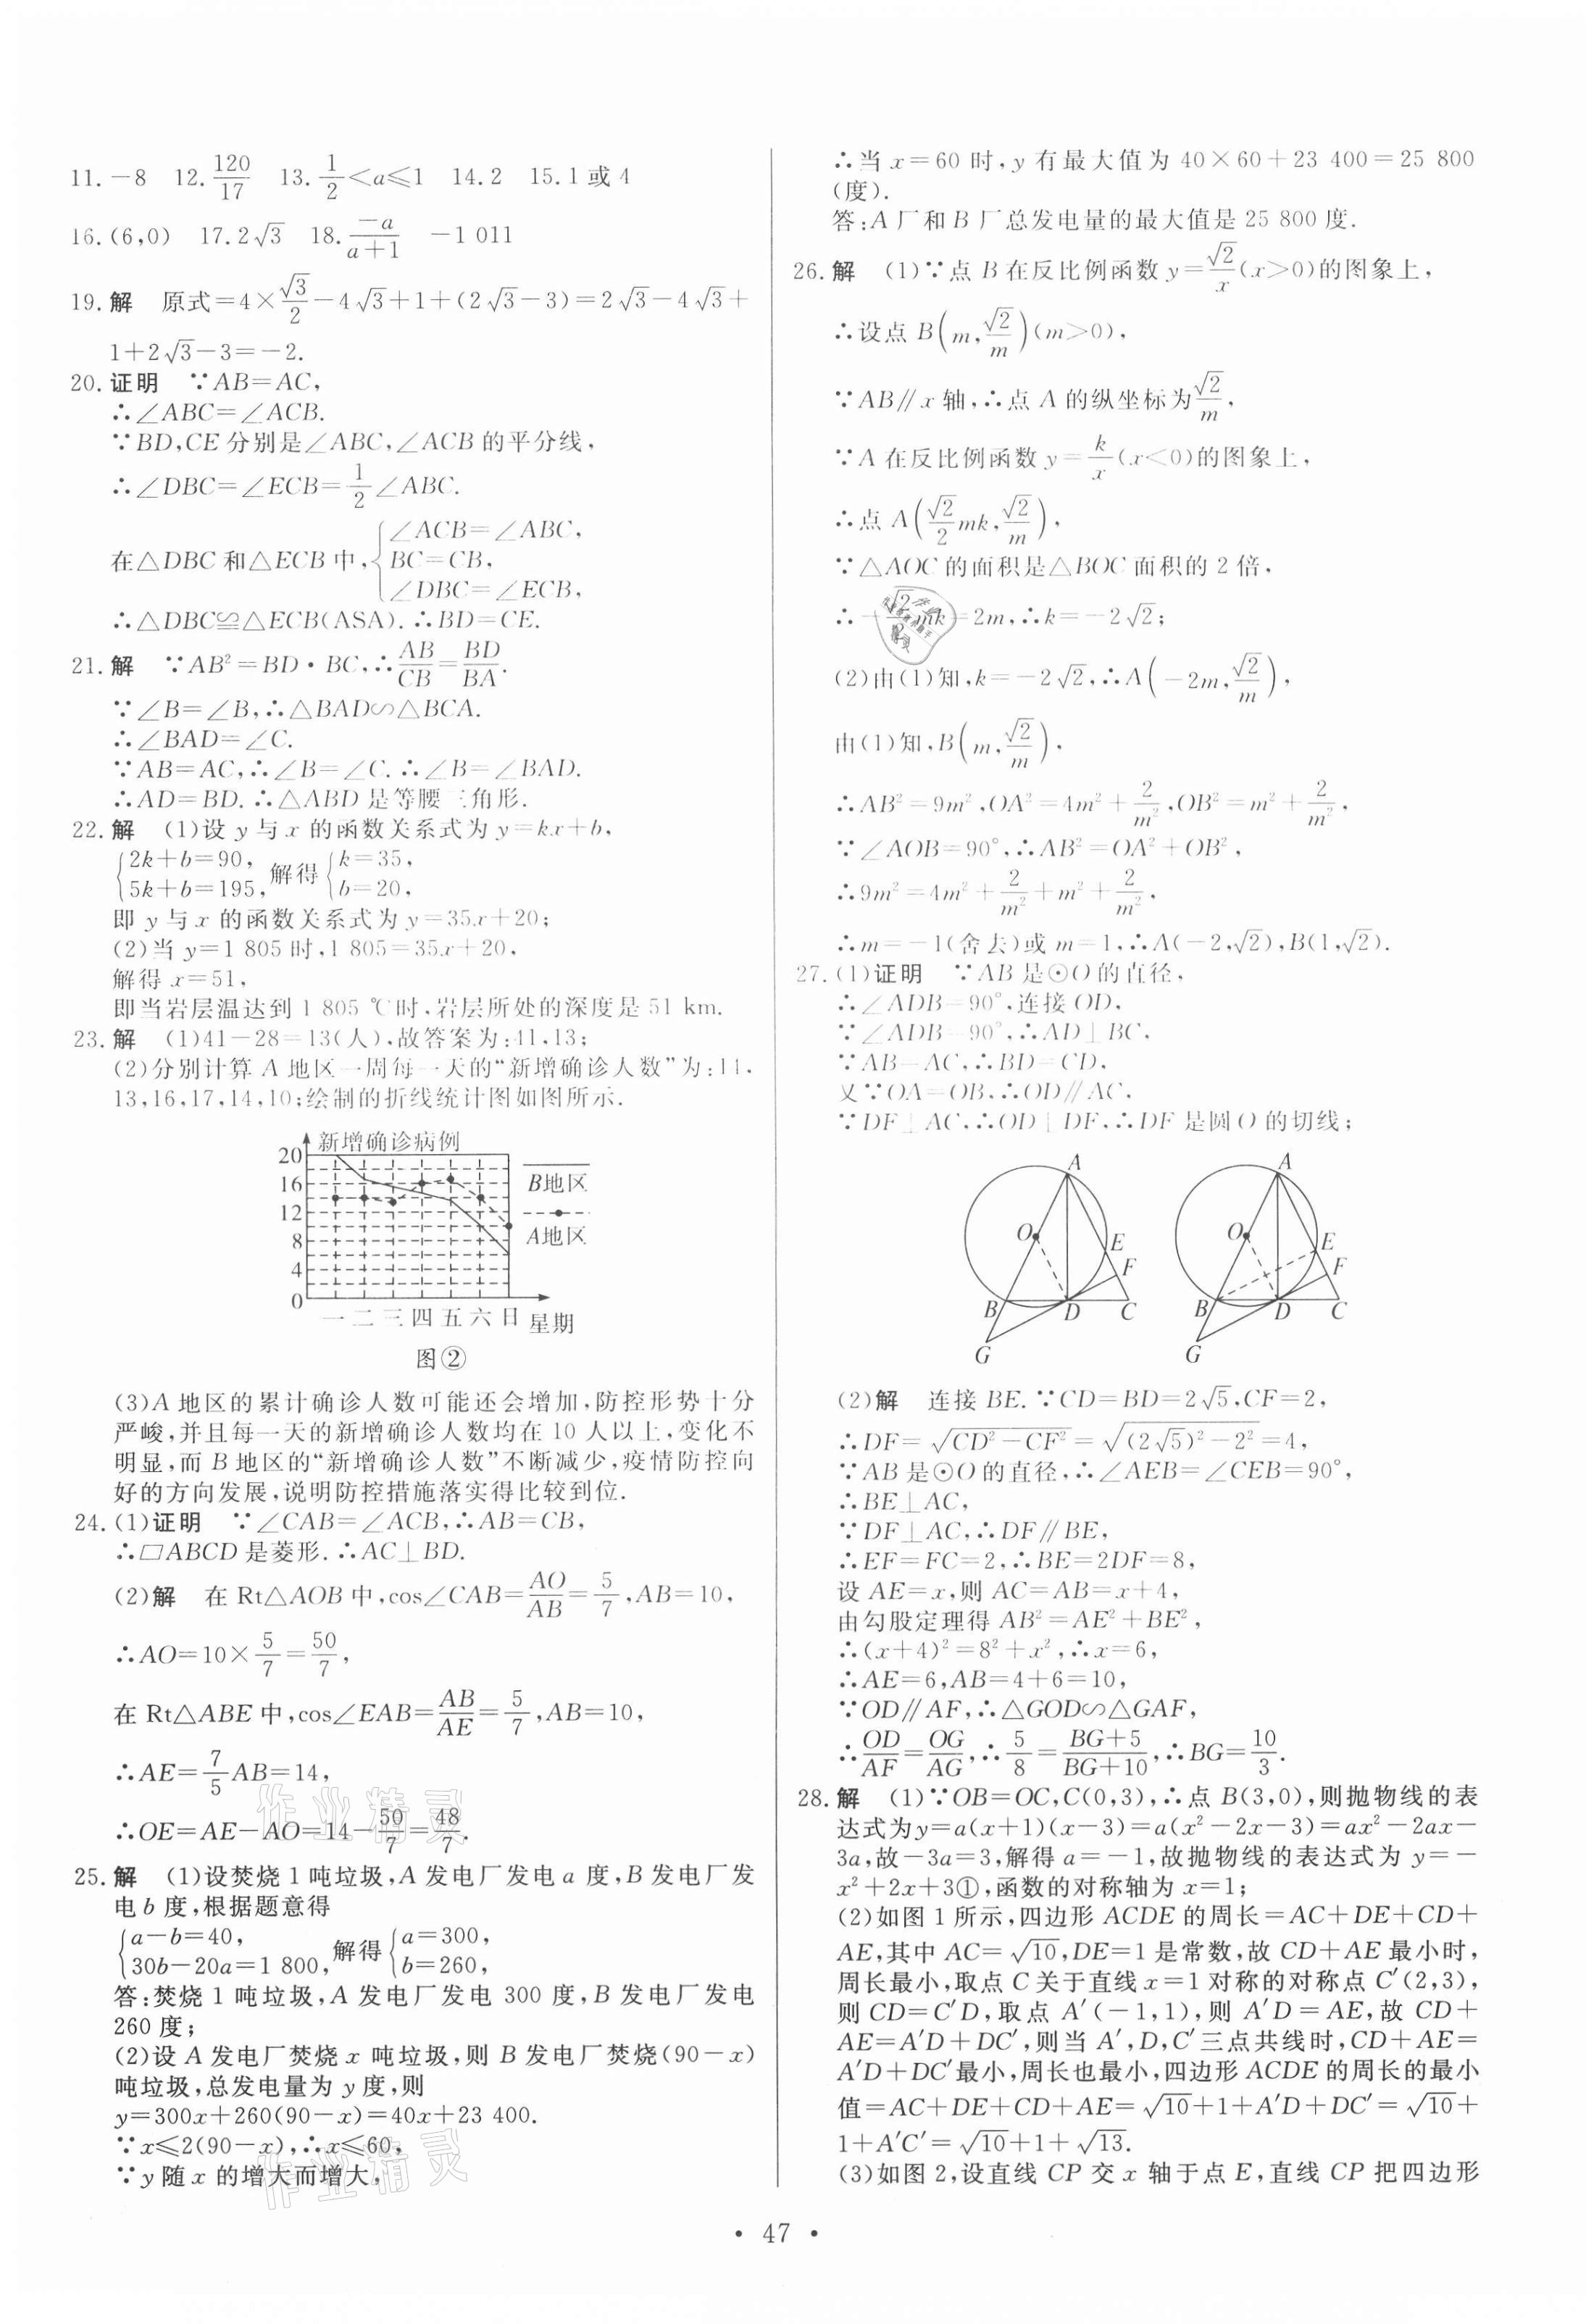 11. -8　12. 120/17　13. 1/2<a≤1　14. 2　15. 1 或 4
16. (6,0)　17. 2√3　18. -a/(a+1)　-1 011
19. 解　原式=4×√3/2-4√3+1+(2√3-3)=2√3-4√3+
1+2√3-3=-2.
20. 证明　∵AB=AC,
∴∠ABC=∠ACB.
∵BD,CE 分别是∠ABC,∠ACB 的平分线,
∴∠DBC=∠ECB=1/2∠ABC.
在△DBC 和△ECB 中,{∠ACB=∠ABC,
BC=CB,
∠DBC=∠ECB,
∴△DBC≌△ECB(ASA).∴BD=CE.
21. 解　∵AB²=BD·BC,∴AB/CB=BD/BA.
∵∠B=∠B,∴△BAD∽△BCA.
∴∠BAD=∠C.
∵AB=AC,∴∠B=∠C.∴∠B=∠BAD.
∴AD=BD.∴△ABD 是等腰三角形.
22. 解　(1)设 y 与 x 的函数关系式为 y=kx+b,
{2k+b=90, 5k+b=195, 解得{k=35, b=20,
即 y 与 x 的函数关系式为 y=35x+20;
(2)当 y=1 805 时,1 805=35x+20,
解得 x=51,
即当岩层温达到 1 805 ℃时,岩层所处的深度是 51 km.
23. 解　(1)41-28=13(人),故答案为:41,13;
(2)分别计算 A 地区一周每一天的“新增确诊人数”为:14,
13,16,17,14,10;绘制的折线统计图如图所示.
新增确诊病例
20
16
12
8
4
0
一 二 三 四 五 六 日 星期
B地区
A地区
图②
(3)A 地区的累计确诊人数可能还会增加,防控形势十分
严峻,并且每一天的新增确诊人数均在 10 人以上,变化不
明显,而 B 地区的“新增确诊人数”不断减少,疫情防控向
好的方向发展,说明防控措施落实得比较到位.
24. (1)证明　∵∠CAB=∠ACB,∴AB=CB,
∴▱ABCD 是菱形.∴AC⊥BD.
(2)解　在 Rt△AOB 中,cos∠CAB=AO/AB=5/7,AB=10,
∴AO=10×5/7=50/7,
在 Rt△ABE 中,cos∠EAB=AB/AE=5/7,AB=10,
∴AE=7/5AB=14,
∴OE=AE-AO=14-50/7=48/7.
25. 解　(1)设焚烧 1 吨垃圾,A 发电厂发电 a 度,B 发电厂发
电 b 度,根据题意得
{a-b=40, 30b-20a=1 800, 解得{a=300, b=260,
答:焚烧 1 吨垃圾,A 发电厂发电 300 度,B 发电厂发电
260 度;
(2)设 A 发电厂焚烧 x 吨垃圾,则 B 发电厂焚烧(90-x)
吨垃圾,总发电量为 y 度,则
y=300x+260(90-x)=40x+23 400.
∵x≤2(90-x),∴x≤60,
∵y 随 x 的增大而增大,
∴当 x=60 时,y 有最大值为 40×60+23 400=25 800
(度).
答:A 厂和 B 厂总发电量的最大值是 25 800 度.
26. 解　(1)∵点 B 在反比例函数 y=√2/x(x>0)的图象上,
∴设点 B(m,√2/m)(m>0),
∵AB∥x 轴,∴点 A 的纵坐标为√2/m,
∵A 在反比例函数 y=k/x(x<0)的图象上,
∴点 A(√2/2mk,√2/m),
∵△AOC 的面积是△BOC 面积的 2 倍,
∴-√2/2mk=2m,∴k=-2√2;
(2)由(1)知,k=-2√2,∴A(-2m,√2/m),
由(1)知,B(m,√2/m),
∴AB²=9m²,OA²=4m²+2/m²,OB²=m²+2/m²,
∵∠AOB=90°,∴AB²=OA²+OB²,
∴9m²=4m²+2/m²+m²+2/m²,
∴m=-1(舍去)或 m=1,∴A(-2,√2),B(1,√2).
27. (1)证明　∵AB 是⊙O 的直径,
∴∠ADB=90°,连接 OD,
∵∠ADB=90°,∴AD⊥BC,
∵AB=AC,∴BD=CD,
又∵OA=OB,∴OD∥AC,
∵DF⊥AC,∴OD⊥DF,∴DF 是圆 O 的切线;
A O E F B D C G
A O E F B D C G
(2)解　连接 BE.∵CD=BD=2√5,CF=2,
∴DF=√(CD²-CF²)=√((2√5)²-2²)=4,
∵AB 是⊙O 的直径,∴∠AEB=∠CEB=90°,
∴BE⊥AC,
∵DF⊥AC,∴DF∥BE,
∴EF=FC=2,∴BE=2DF=8,
设 AE=x,则 AC=AB=x+4,
由勾股定理得 AB²=AE²+BE²,
∴(x+4)²=8²+x²,∴x=6,
∴AE=6,AB=4+6=10,
∵OD∥AF,∴△GOD∽△GAF,
∴OD/AF=OG/AG,∴5/8=(BG+5)/(BG+10),∴BG=10/3.
28. 解　(1)∵OB=OC,C(0,3),∴点 B(3,0),则抛物线的表
达式为y=a(x+1)(x-3)=a(x²-2x-3)=ax²-2ax-
3a,故-3a=3,解得 a=-1,故抛物线的表达式为 y=-
x²+2x+3①,函数的对称轴为 x=1;
(2)如图 1 所示,四边形 ACDE 的周长=AC+DE+CD+
AE,其中 AC=√10,DE=1 是常数,故 CD+AE 最小时,
周长最小,取点 C 关于直线 x=1 对称的对称点 C′(2,3),
则 CD=C′D,取点 A′(-1,1),则 A′D=AE,故 CD+
AE=A′D+DC′,则当 A′,D,C′三点共线时,CD+AE=
A′D+DC′最小,周长也最小,四边形 ACDE 的周长的最小
值=AC+DE+CD+AE=√10+1+A′D+DC′=√10+
1+A′C′=√10+1+√13.
(3)如图 2,设直线 CP 交 x 轴于点 E,直线 CP 把四边形
作业精灵
作业精灵
• 47 •